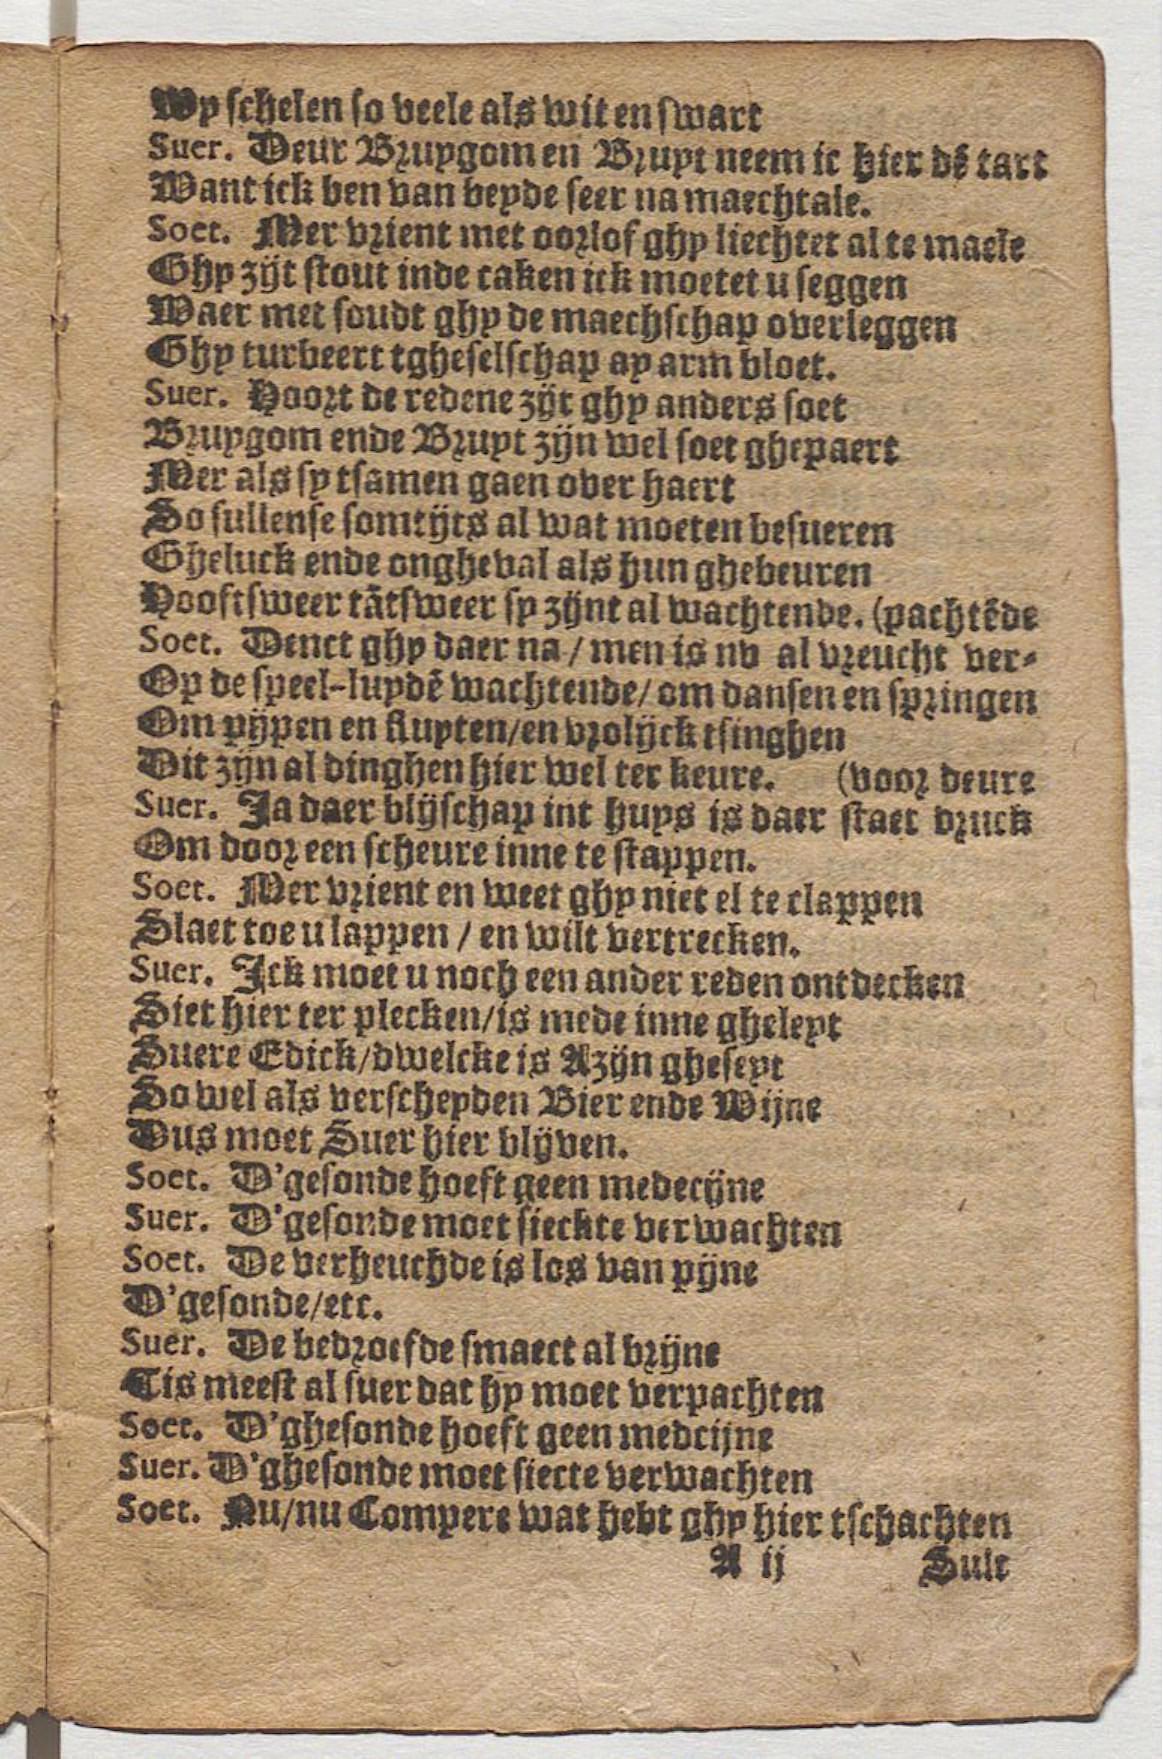 Wy schelen so veele als wit en swart
Suer. Deur Bruygom en Bruyt neem ic hier dē tart
Want ick ben van beyde seer na maechtale.
Soet. Mer vrient met oorlof ghy liechtet al te maele
Ghy zijt stout inde caken ick moetet u seggen
Waer met soudt ghy de maechschap overleggen
Ghy turbeert tgheselschap ay arm bloet.
Suer. Hoort de redene zijt ghy anders soet
Bruygom ende Bruyt zijn wel soet ghepaert
Mer als sy tsamen gaen over haert
So sullense somtijts al wat moeten besueren
Gheluck ende ongheval als hun ghebeuren
Hooftsweer tātsweer sy zijnt al wachtende. (pachtēde
Soet. Denct ghy daer na / men is nv al vreucht ver-
Op de speel-luydē wachtende/ om dansen en springen
Om pijpen en fluyten/en vrolijck tsinghen
Dit zijn al dinghen hier wel ter keure. (voor deure
Suer. Ja daer blijschap int huys is daer staet druck
Om door een scheure inne te stappen.
Soet. Mer vrient en weet ghy niet el te clappen
Slaet toe u lappen / en wilt vertrecken.
Suer. Ick moet u noch een ander reden ontdecken
Siet hier ter plecken/is mede inne gheleyt
Suere Edick/dwelcke is Azijn gheseyt
So wel als verscheyden Bier ende Wijne
Dus moet Suer hier blijven.
Soet. D'gesonde hoeft geen medecijne
Suer. D'gesonde moet sieckte verwachten
Soet. De verheuchde is los van pijne
D'gesonde/etc.
Suer. De bedroefde smaect al brijne
Tis meest al suer dat hy moet verpachten
Soet. D'ghesonde hoeft geen medcijne
Suer. D'ghesonde moet siecte verwachten
Soet. Nu/nu Compere wat hebt ghy hier tschachten
A ij Sult